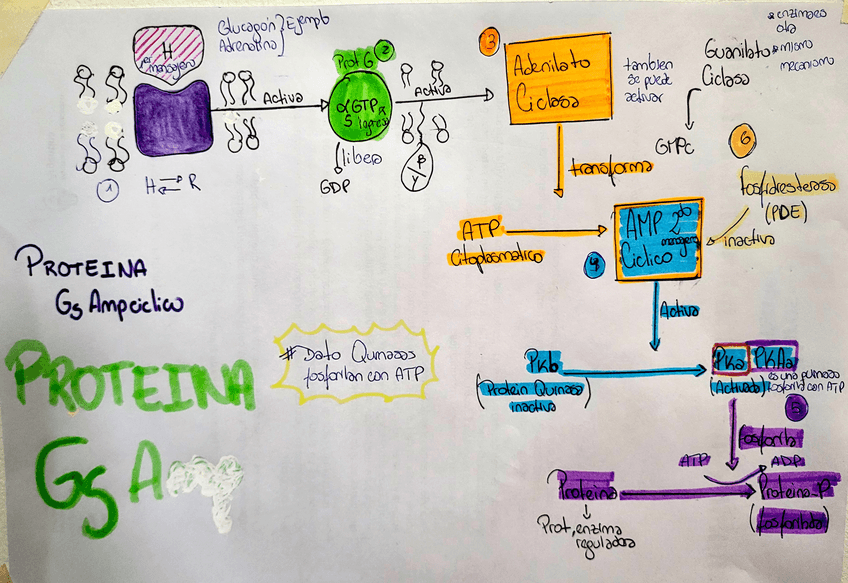 Glucagón } Ejemplo
Adrenalina
H
1er mensajero
1
H ⇌ R
Activa
Prot G 2
αGTP
S ingresa
libera
GDP
Activa
β
γ
3
Adenilato
Ciclasa
tambien
se puede
activar
Guanilato
Ciclasa
* enzimaes
otra
* mismo
mecanismo
GMPc
transforma
6
fosfidresterasa
(PDE)
inactiva
ATP
Citoplasmatico
AMP 2do
mensajero
Ciclico
4
Activa
PROTEINA
Gs Ampciclico
PROTEINA
Gs A
# Dato Quinasas
fosforilan con ATP
Pkb
(Protein Quinasa
inactiva)
PKa
PKAa
(Activada)
es una quinasa
fosforila con ATP
5
fosforila
ATP
ADP
Proteina
Proteina-P
(fosforilada)
Prot, enzima
reguladora